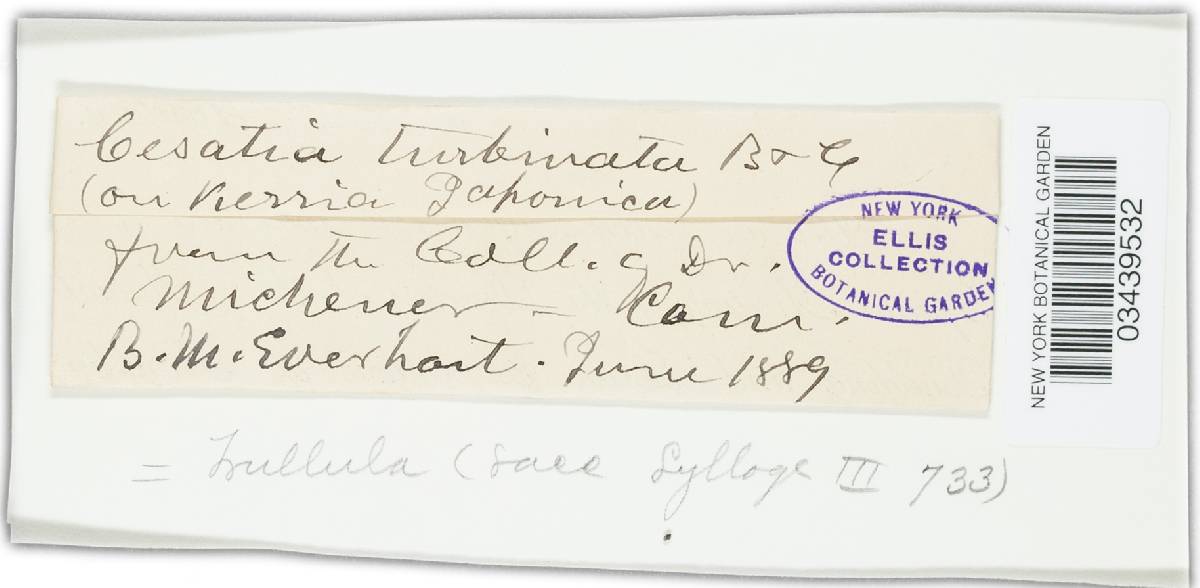 Cesatia turbinata B & C
(on Kerria Japonica)
from the Coll. of Dr.
Michener - Com.
B. M. Everhart. June 1889
NEW YORK
ELLIS
COLLECTION
BOTANICAL GARDEN
NEW YORK BOTANICAL GARDEN
03439532
= Trullula (Sacc Sylloge III 733)